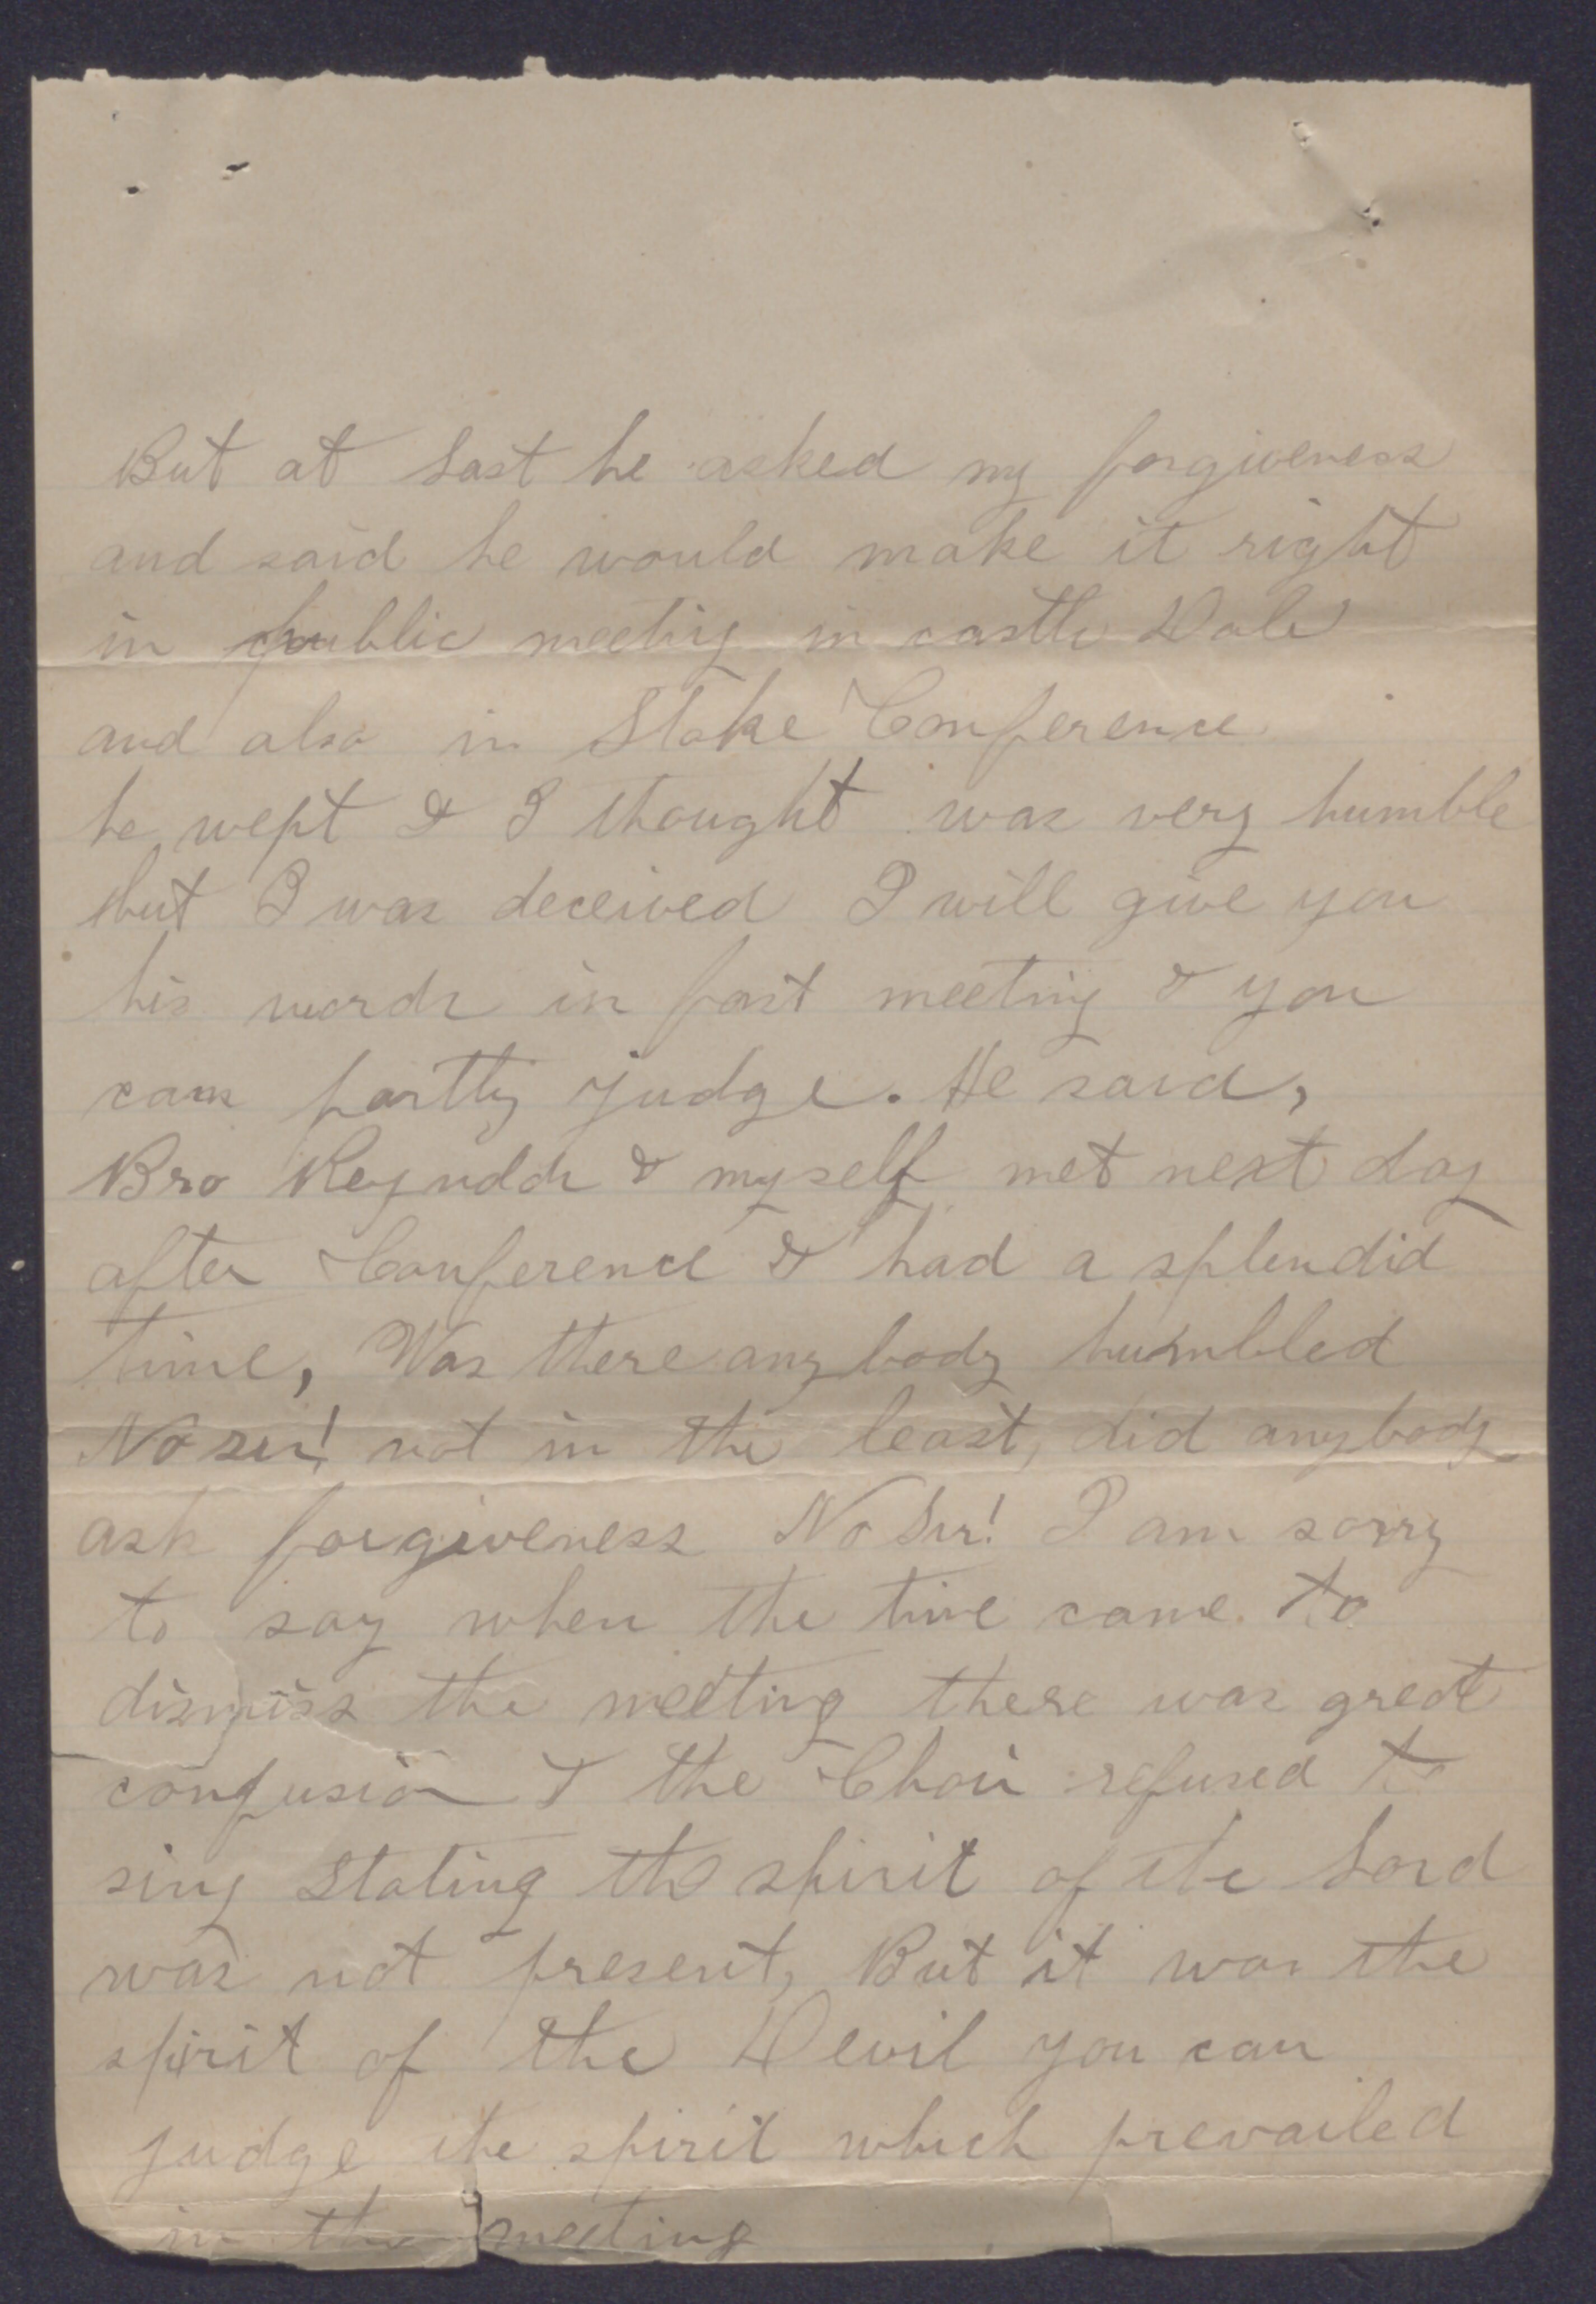 But at Last he asked my forgiveness
and said he would make it right
in public meeting in castle Dale
and also in Stake Conference
he wept & I thought was very humble
but I was deceived I will give you
his words in fast meeting & you
can partly judge. He said,
Bro Reynolds & myself met next day
after Conference & had a splendid
time, Was there any body humbled
No sir! not in the least, did any body
ask forgiveness No Sir! I am sorry
to say when the time came to
dismiss the meeting there was great
confusion & the Choir refused to
sing Stating the spirit of the Lord
was not present, But it was the
spirit of the Devil you can
judge the spirit which prevailed
in the meeting